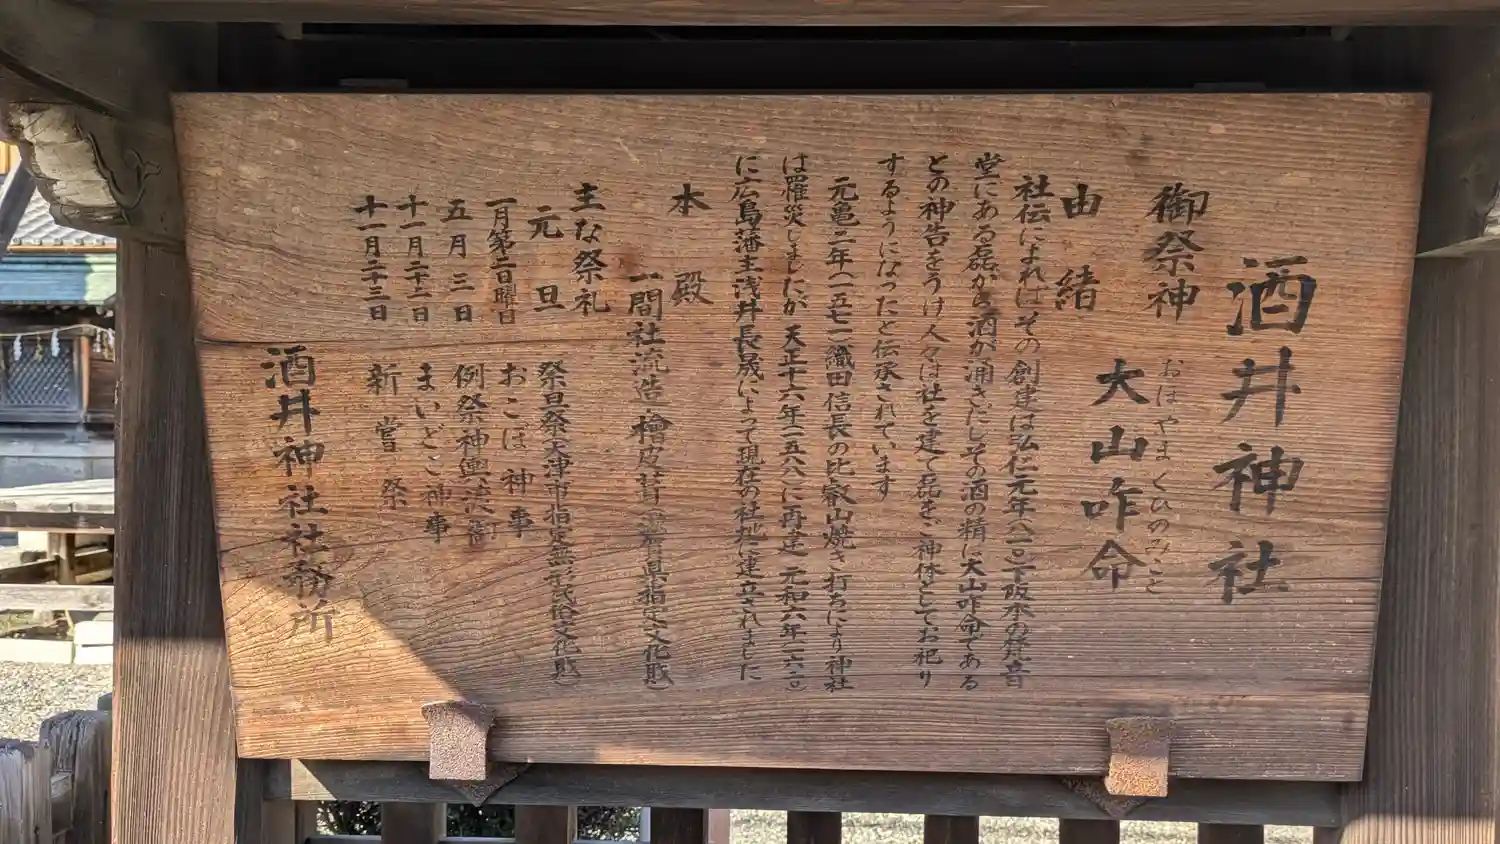 酒井神社
御祭神
おほやまくひのみこと
大山咋命
由緒
社伝によればその創建は弘仁元年(八一〇)下阪本の梵音
堂にある磊から酒が涌きだしその酒の精は大山咋命である
との神告をうけ人々は社を建て磊をご神体としてお祀り
するようになったと伝承されています
元亀二年(一五七一)織田信長の比叡山焼き打ちにより神社
は罹災しましたが 天正十六年(一五八八)に再建 元和六年(一六二〇)
に広島藩主浅井長晟によって現在の社地に建立されました
本殿
一間社流造・檜皮葺(滋賀県指定文化財)
主な祭礼
元旦 祭旦祭(大津市指定無形民俗文化財)
一月第二日曜日 おこぼ神事
五月三日 例祭神輿渡御
十一月二十二日 まいどこ神事
十一月二十三日 新嘗祭
酒井神社社務所